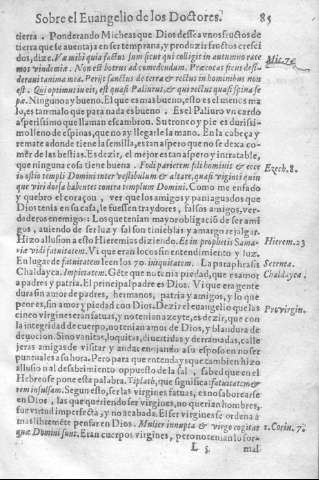 Sobre el Euangelio de los Doctores. 85
tierra. Ponderando Micheas que Dios dessea vnos fructos de
tierra que se auentaja en ser temprana, y produzir fructos cresci
dos, dize. Væ mihi quia factus sum sicut qui colligit in autumno race
mos vindemiæ. Non est botrus ad comedendum. Præcoces ficus desi-
derauit anima mea. Perijt sanctus de terra & rectus in hominibus non
est. Qui optimus in eis, est quasi Paliurus, & qui rectus quasi spina se
pæ. Ninguno ay bueno. El que es mas bueno, esso es el menos ma
lo, es tan malo que para nada es bueno. Es el Paliuro vn cardo
asperissimo que llaman escambron. Su tronco y pie es durissi-
mo lleno de espinas, que no ay llegarle la mano. En la cabeça y
remate adonde tiene la semilla, estan aspero que no se dexa co-
mer de las bestias. Es dezir, el mejor es tan aspero y intratable,
que ninguna cosa tiene buena. Fodi parietem
io ostij templi Domini inter vestibulum & altare, quasi viginti quin
que viri dorsa habentes contra templum Domini. Como me enfado
y quebro el coraçon, ver que los amigos y paniaguados que
Dios tenia en su casa, le fuessen traydores, falsos amigos, ver-
daderos enemigos: Los que tenian mayor obligacion de ser ami
gos, auiendo de ser luz y sal son tinieblas y amargo rejalgar.
Hizo allusion a esto Hieremias diziendo. Et in prophetis Sama-
riæ vidi fatuitatem. Vi que eran locos sin entendimiento y luz.
En lugar de fatuitatem leen los 70. iniquitatem. La paraphrasis
Chaldayca. Impietatem. Gẽte que no tenia piedad, que es amor
a padres y patria. El principal padre es Dios. Vi que era gente
dura sin amor de padres, hermanos, patria y amigos, y lo que
peor es, sin amor y piedad con Dios. Dezir el euangelio que las
cinco virgines eran fatuas, y no tenian azeyte, es dezir, que con
la integridad de cuerpo, no tenian amor de Dios, y blandura de
deuocion. Sino vanitas, loquitas, diuertidas y derramadas, calle
jeras amigas de visitar y andar en jamõ a su esposo en no ser
puntuales a su hora. Pero para que se entenda ys que tambien hizo
allusion al desabrimiento oppuesto de la sal, sabed que en el
Hebreo se pone esta palabra. Tiplath, que significa: fatuitatem &
rem insulsam. Segun esto, ser las virgines fatuas, es no saborearse
en Dios, las que queriendo ser virgines, no querian hombres,
fue virtud imperfecta, y no acabada. El ser virgines se ordena à
mas libremẽte pensar en Dios. Mulier innupta & virgo cogitat
quæ Domini sunt. Eran cuerpos virgines, pero no tenian lo for-
L 5 mal
Mic. 7.
Ezech. 8.
Hierem. 23
Setenta.
Chaldayca.
Prouirgin.
1. Corin. 7.